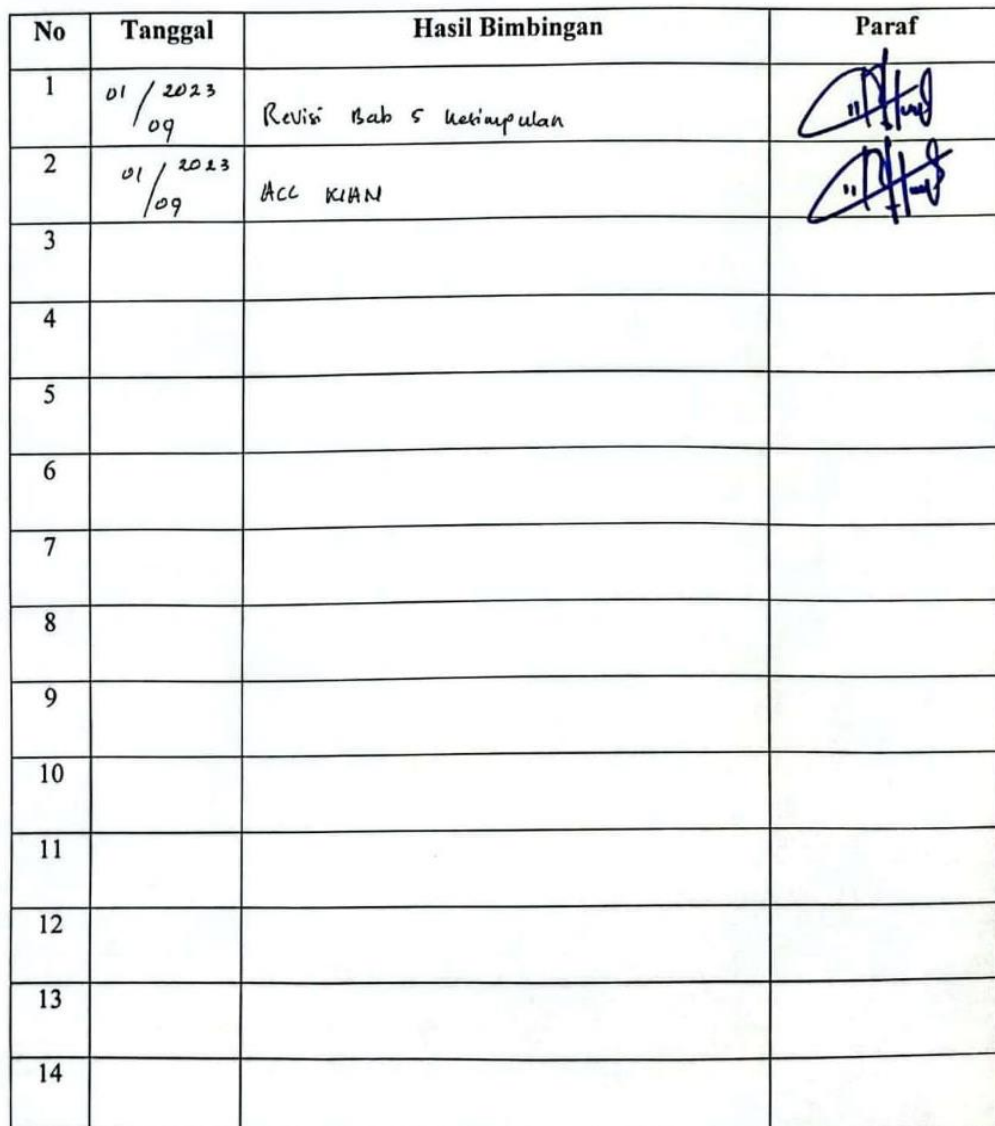 No Tanggal Hasil Bimbingan Paraf
1 01/09 2023 Revisi Bab 5 Kesimpulan
2 01/09 2023 ACC KIAN
3
4
5
6
7
8
9
10
11
12
13
14